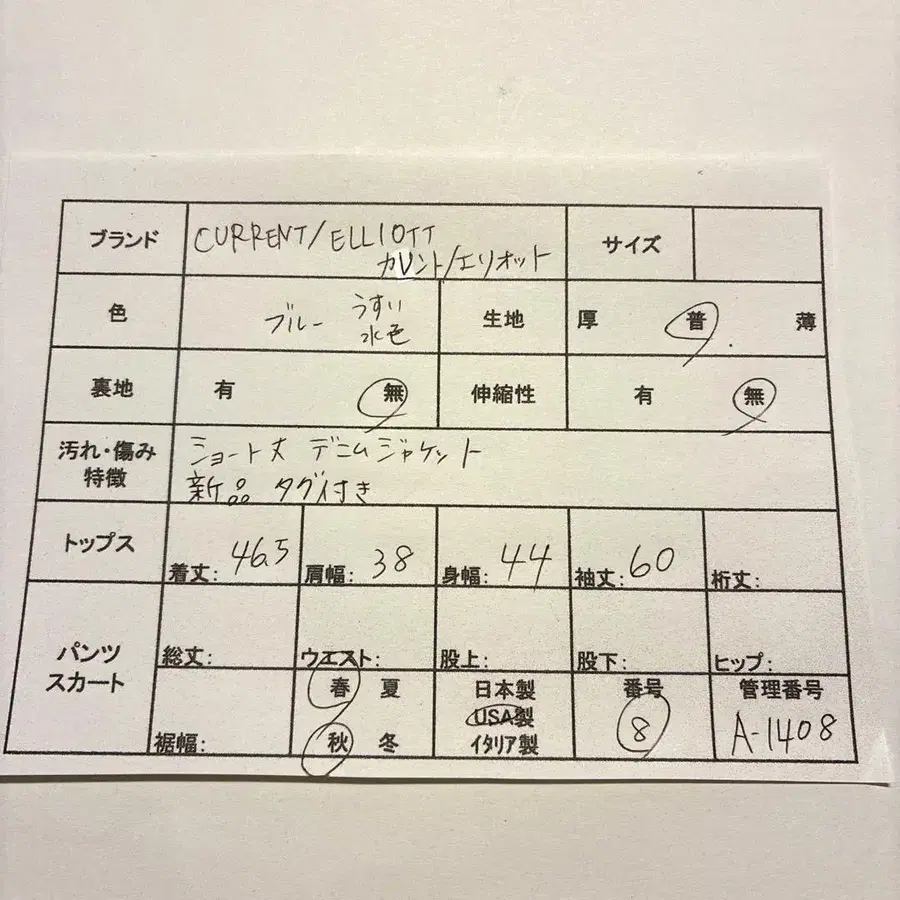 ブランド CURRENT/ELLIOTT サイズ
カレント/エリオット
色 ブルー うすい 水色 生地 厚 普 薄
裏地 有 無 伸縮性 有 無
汚れ・傷み ショート丈 デニムジャケット
特徴 新品 タグ付き
トップス 着丈: 46.5 肩幅: 38 身幅: 44 袖丈: 60 裄丈:
パンツ スカート 総丈: ウエスト: 股上: 股下: ヒップ:
裾幅: 春 夏 日本製 番号 管理番号
USA製 8 A-1408
秋 冬 イタリア製